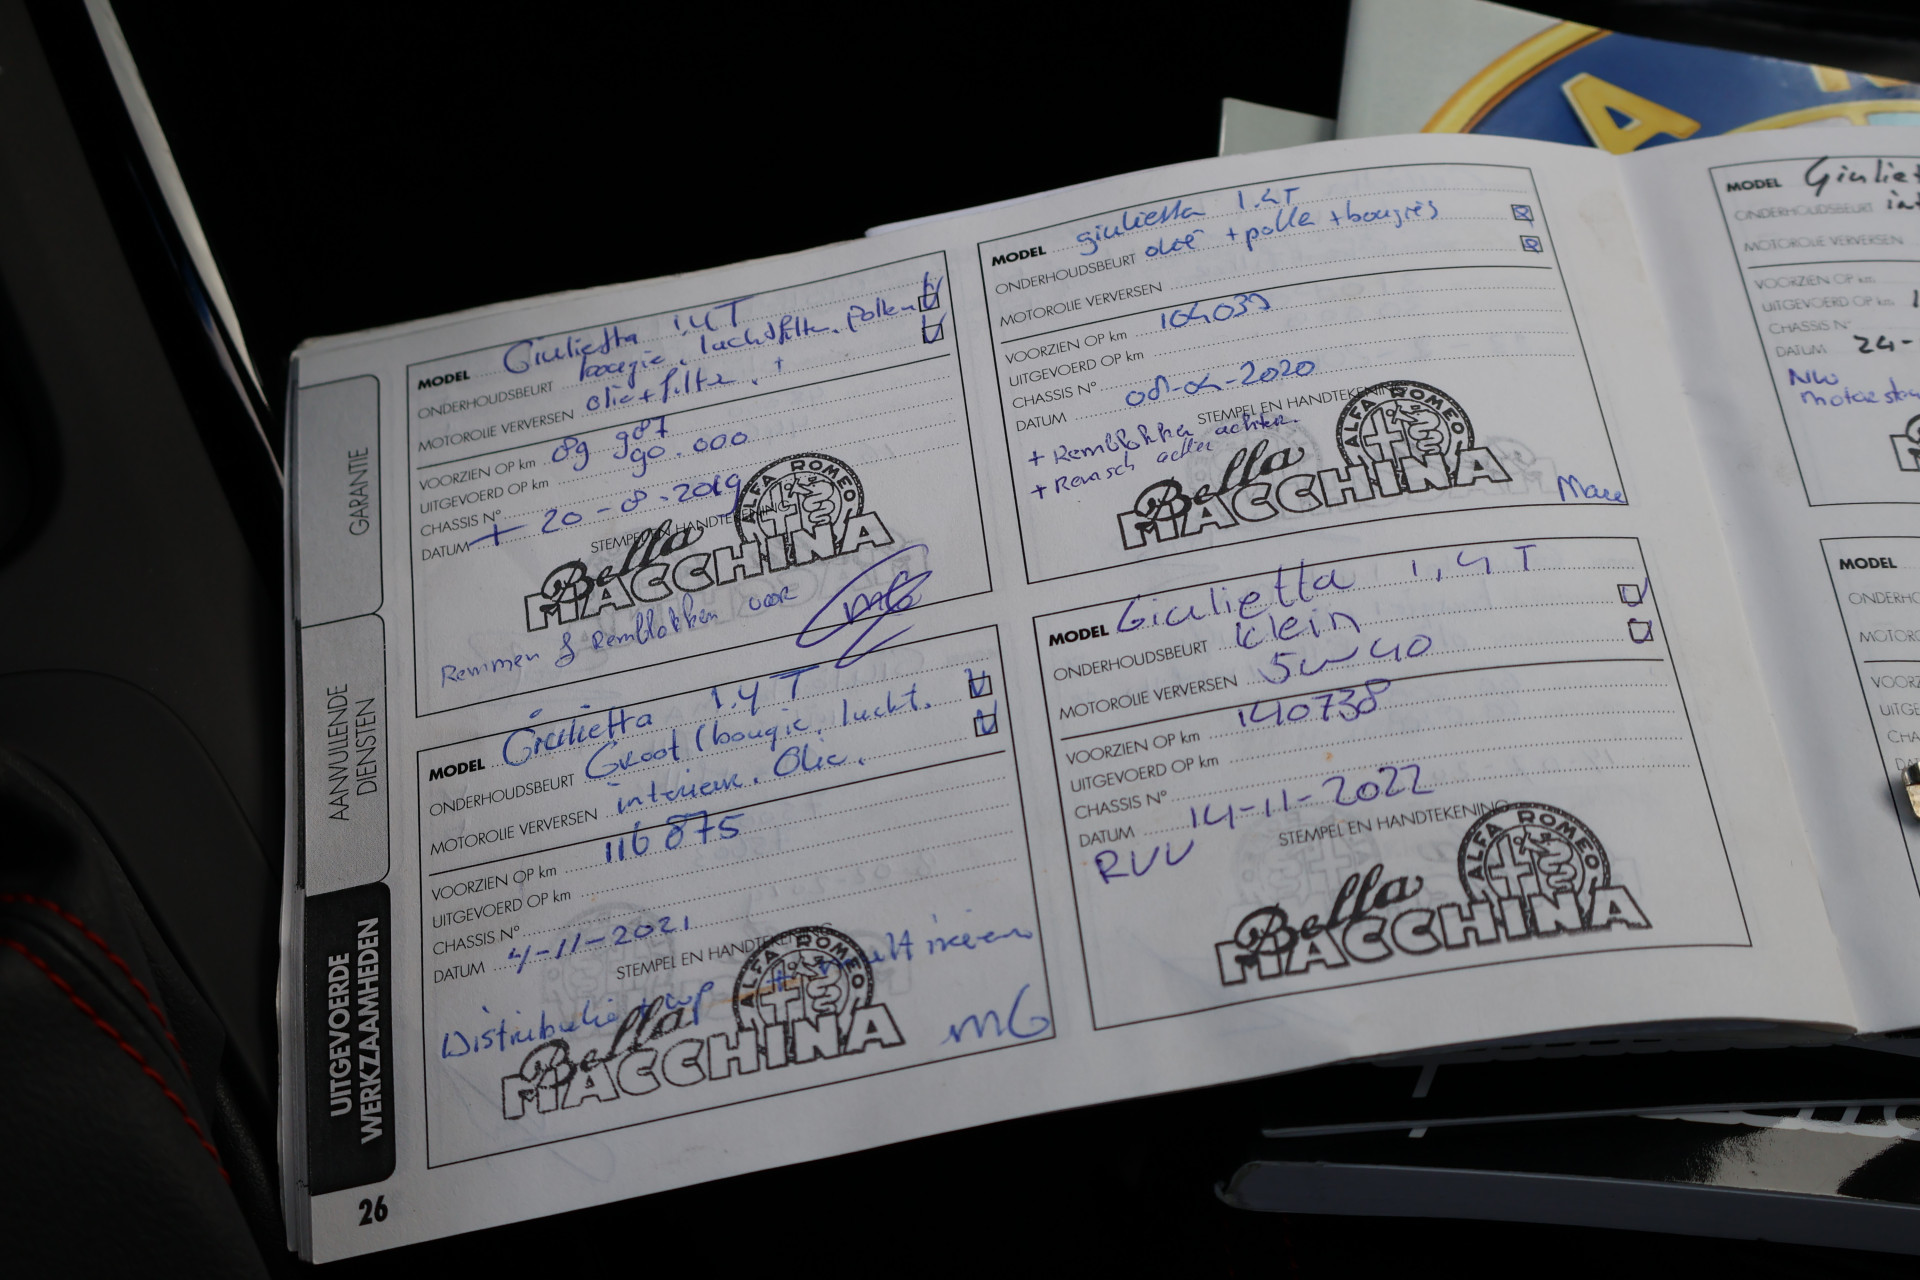 A
GARANTIE
AANVULLENDE
DIENSTEN
UITGEVOERDE
WERKZAAMHEDEN
26
MODEL Giulietta 1.4T
ONDERHOUDSBEURT bougie, luchtfilter, Pollen
MOTOROLIE VERVERSEN olie + filter. +
VOORZIEN OP km 89 987
UITGEVOERD OP km 90.000
CHASSIS N°
DATUM 20-8-2019
STEMPEL EN HANDTEKENING
ALFA ROMEO
Bella
MACCHINA
Remmen & Remblokken voor
MG
MODEL Giulietta 1.4T
ONDERHOUDSBEURT Groot (bougie, lucht,
MOTOROLIE VERVERSEN interieur. Olie.
VOORZIEN OP km 116875
UITGEVOERD OP km
CHASSIS N°
DATUM 4-11-2021
STEMPEL EN HANDTEKENING
ALFA ROMEO
Distributie + wp
Bella
MACCHINA
MG
MODEL giulietta 1.4T
ONDERHOUDSBEURT olie + pollen + bougies
MOTOROLIE VERVERSEN
VOORZIEN OP km 104039
UITGEVOERD OP km
CHASSIS N°
DATUM 08-04-2020
STEMPEL EN HANDTEKENING
+ Remblokken achter.
+ Remsch achter
ALFA ROMEO
Bella
MACCHINA
MODEL Giulietta 1,4 T
ONDERHOUDSBEURT Klein
MOTOROLIE VERVERSEN 5w40
VOORZIEN OP km 140738
UITGEVOERD OP km
CHASSIS N°
DATUM 14-11-2022
RVV
STEMPEL EN HANDTEKENING
ALFA ROMEO
Bella
MACCHINA
MODEL Giuliet
ONDERHOUDSBEURT int
MOTOROLIE VERVERSEN
VOORZIEN OP km
UITGEVOERD OP km 1
CHASSIS N°
DATUM 24-
NW
Motorsteu
MODEL
ONDERHO
MOTORO
VOORZ
UITGE
CHA
DAT